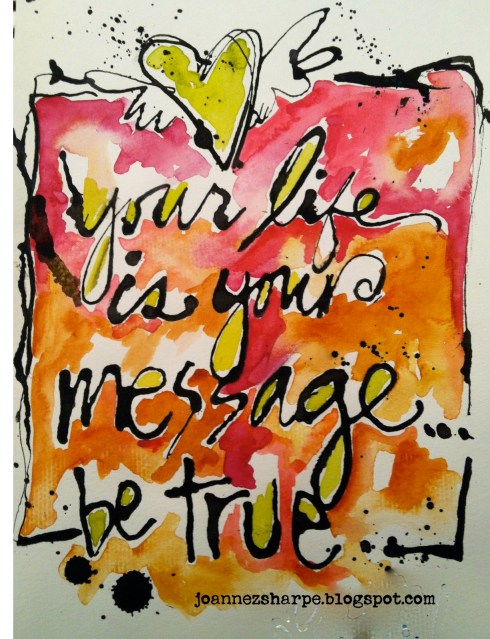 your life
is your
message...
be true
joannezsharpe.blogspot.com